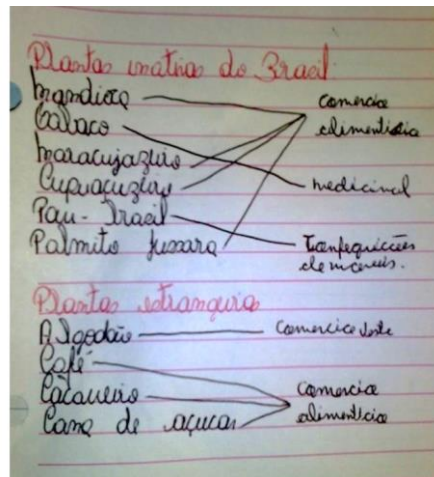 Plantas nativa do Brasil
Mandioca
Tabaco
Maracujazeiro
Cupuaçuzeiro
Pau-Brasil
Palmito Jussara
comercio
alimenticia
medicinal
confequicões
de moveis.
Plantas estrangeira
Algodão
Café
Cacaueiro
Cana de açucar
Comercio
comercio
alimenticia